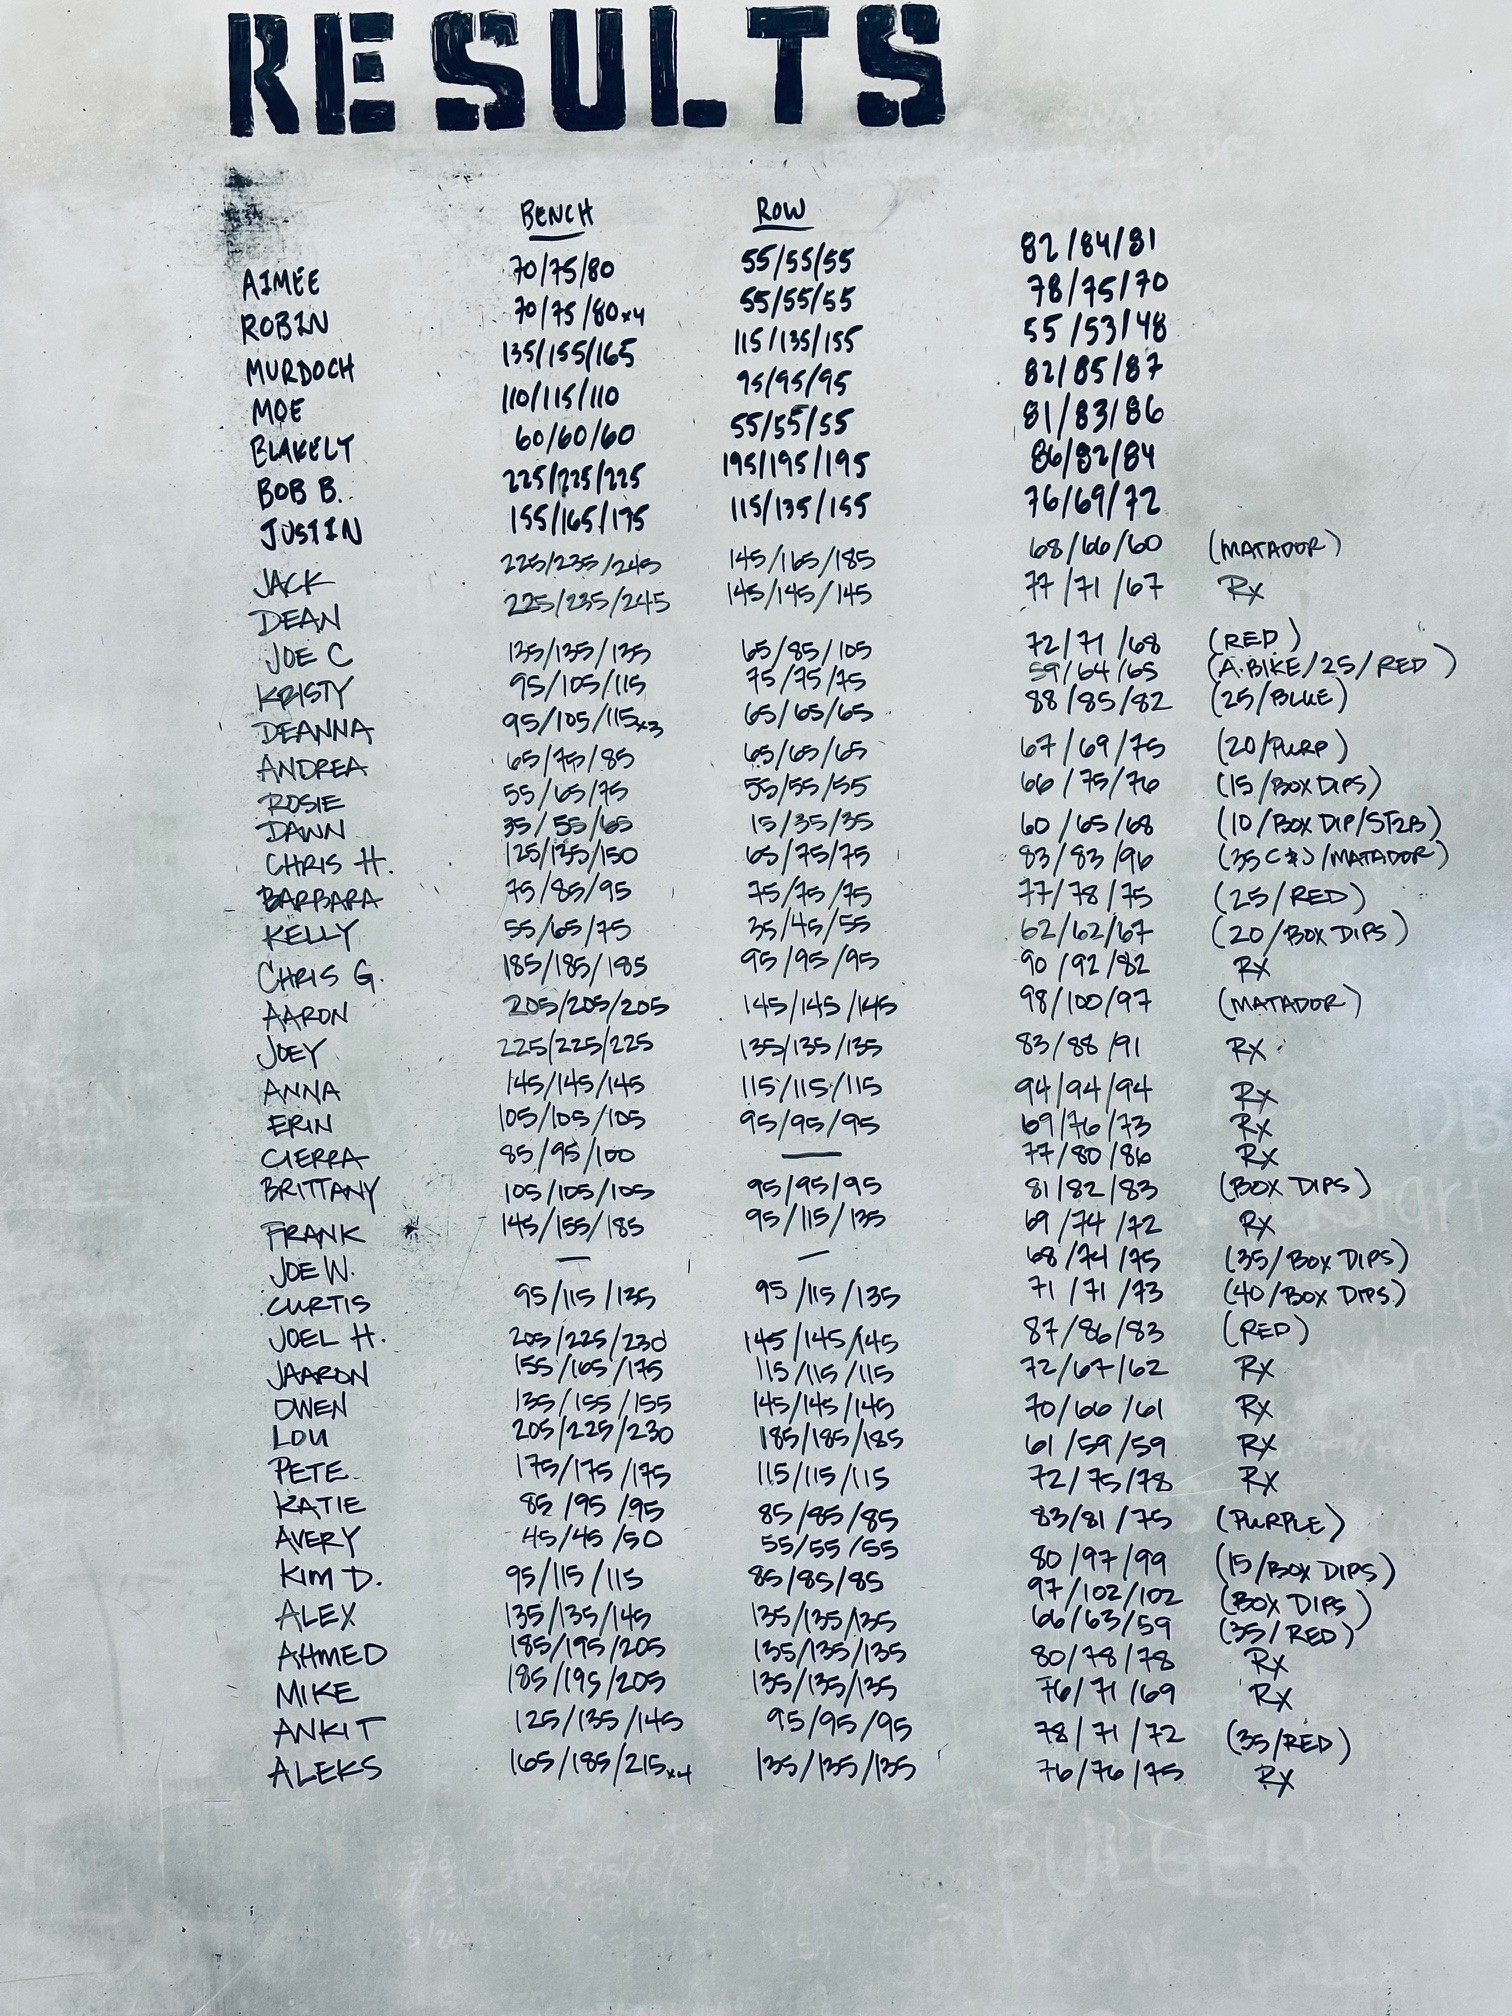 RESULTS
BENCH ROW
AIMEE 70/75/80 55/55/55 82/84/81
ROBIN 70/75/80x4 55/55/55 78/75/70
MURDOCH 135/155/165 115/135/155 55/53/48
MOE 110/115/110 95/95/95 82/85/87
BLAKELY 60/60/60 55/55/55 81/83/86
BOB B. 225/225/225 195/195/195 86/82/84
JUSTIN 155/165/175 115/135/155 76/69/72
JACK 225/235/245 145/165/185 68/66/60 (MATADOR)
DEAN 225/235/245 145/145/145 77/71/67 Rx
JOE C 135/135/135 65/85/105 72/71/68 (RED)
KRISTY 95/105/115 75/75/75 59/64/65 (A.BIKE/25/RED)
DEANNA 95/105/115x3 65/65/65 88/85/82 (25/BLUE)
ANDREA 65/75/85 65/65/65 67/69/75 (20/PURP)
ROSIE 55/65/75 55/55/55 66/75/76 (15/BOX DIPS)
DAWN 35/55/65 15/35/35 60/65/68 (10/BOX DIP/ST2B)
CHRIS H. 125/135/150 65/75/75 83/83/96 (35 C&J/MATADOR)
BARBARA 75/85/95 75/75/75 77/78/75 (25/RED)
KELLY 55/65/75 35/45/55 62/62/67 (20/BOX DIPS)
CHRIS G. 185/185/185 95/95/95 90/92/82 Rx
AARON 205/205/205 145/145/145 98/100/97 (MATADOR)
JOEY 225/225/225 135/135/135 83/88/91 Rx
ANNA 145/145/145 115/115/115 94/94/94 Rx
ERIN 105/105/105 95/95/95 69/76/73 Rx
CIERRA 85/95/100 — 77/80/86 Rx
BRITTANY 105/105/105 95/95/95 81/82/83 (BOX DIPS)
FRANK 145/155/185 95/115/135 69/74/72 Rx
JOE W. — — 68/74/75 (35/BOX DIPS)
CURTIS 95/115/135 95/115/135 71/71/73 (40/BOX DIPS)
JOEL H. 205/225/230 145/145/145 87/86/83 (RED)
JAARON 155/165/175 115/115/115 72/67/62 Rx
OWEN 135/155/155 145/145/145 70/66/61 Rx
LOU 205/225/230 185/185/185 61/59/59 Rx
PETE 175/175/175 115/115/115 72/75/78 Rx
KATIE 85/95/95 85/85/85 83/81/75 (PURPLE)
AVERY 45/45/50 55/55/55 80/97/99 (15/BOX DIPS)
KIM D. 95/115/115 85/85/85 97/102/102 (BOX DIPS)
ALEX 135/135/145 135/135/135 66/63/59 (35/RED)
AHMED 185/195/205 135/135/135 80/78/78 Rx
MIKE 185/195/205 135/135/135 76/71/69 Rx
ANKIT 125/135/145 95/95/95 78/71/72 (35/RED)
ALEKS 165/185/215x4 135/135/135 76/76/75 Rx